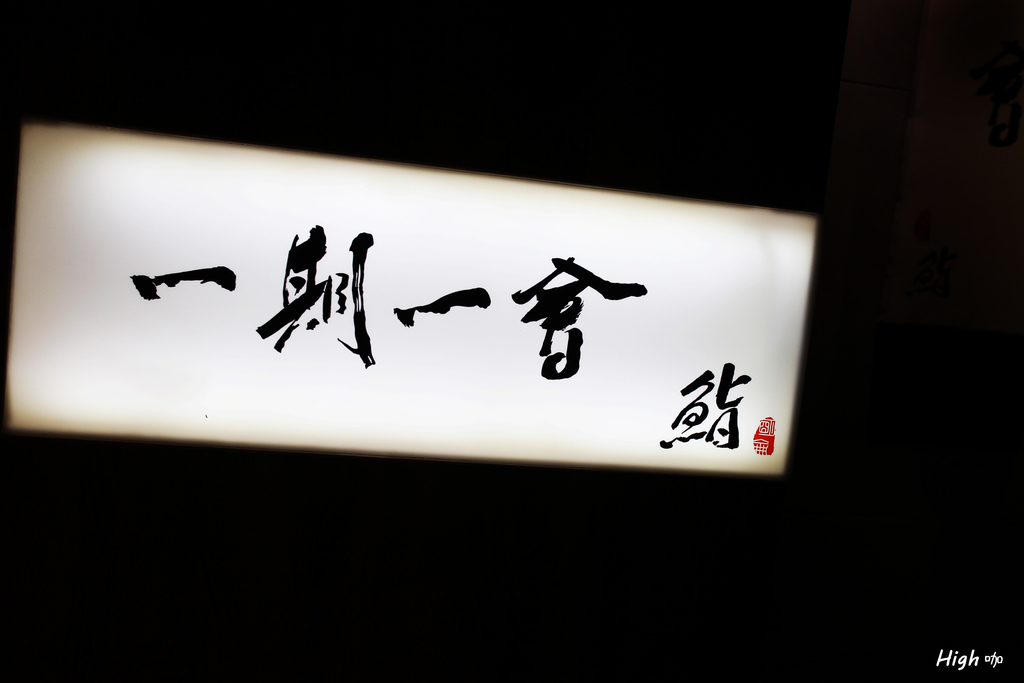 一期一會
鮨
會
鮨
High 咖